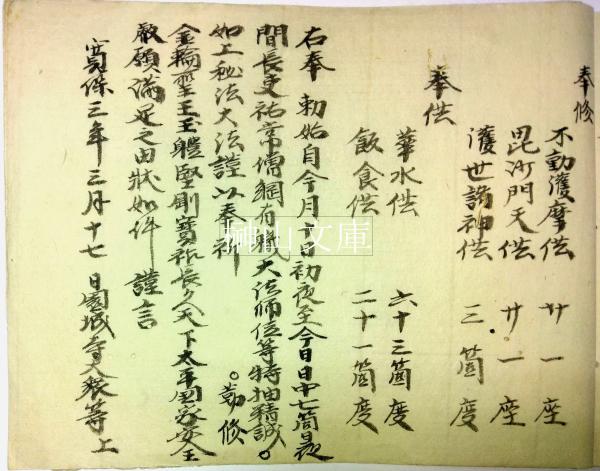 奉修
不動護摩供 廿一座
毘沙門天供 廿一座
護世諸神供 三箇度
奉供
華水供 六十三箇度
飯食供 二十一箇度
右奉 勅始自今月十日初夜至今日日中七箇日夜
間長吏祐常僧綱有職大法師位等特抽精誠。
如上秘法大法謹以奉祈 。勤修
金輪聖王玉體堅剛寳祚長久天下太平国家安全
厳願満足之由状如件 謹言
寛保三年三月十七日園城寺大衆等上
榊山文庫